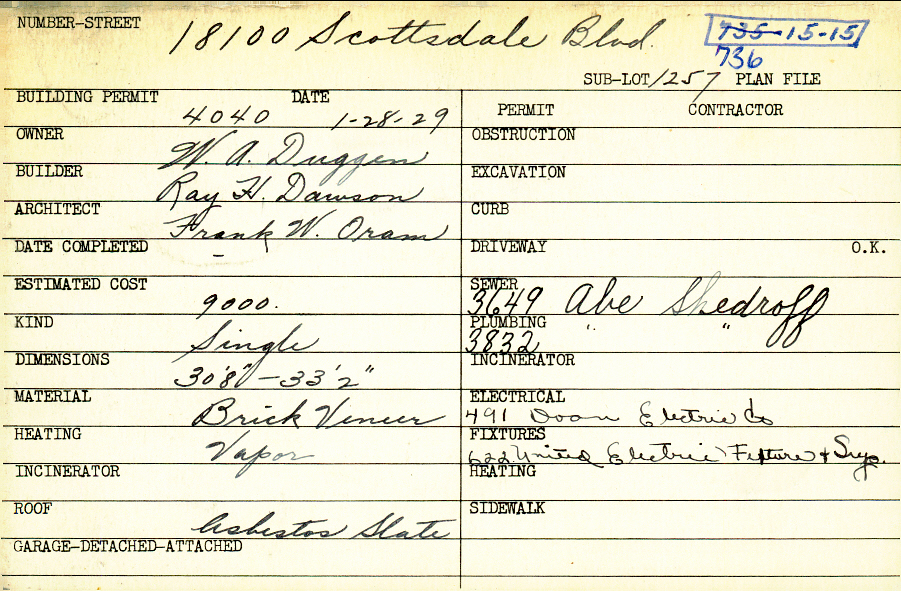 NUMBER-STREET 18100 Scottsdale Blvd. 735-15-15
736
SUB-LOT 1257 PLAN FILE
BUILDING PERMIT 4040 DATE 1-28-29
PERMIT CONTRACTOR
OWNER W. A. Duggen
OBSTRUCTION
BUILDER Ray H. Dawson
EXCAVATION
ARCHITECT Frank W. Oram
CURB
DATE COMPLETED -
DRIVEWAY O.K.
ESTIMATED COST 9000.
SEWER 3649 Abe Shedroff
KIND Single
PLUMBING 3832 " "
DIMENSIONS 30'8" - 33'2"
INCINERATOR
MATERIAL Brick Veneer
ELECTRICAL 491 Doan Electric Co
HEATING Vapor
FIXTURES 622 United Electric Fixture + Sup.
INCINERATOR
HEATING
ROOF Asbestos Slate
SIDEWALK
GARAGE-DETACHED-ATTACHED